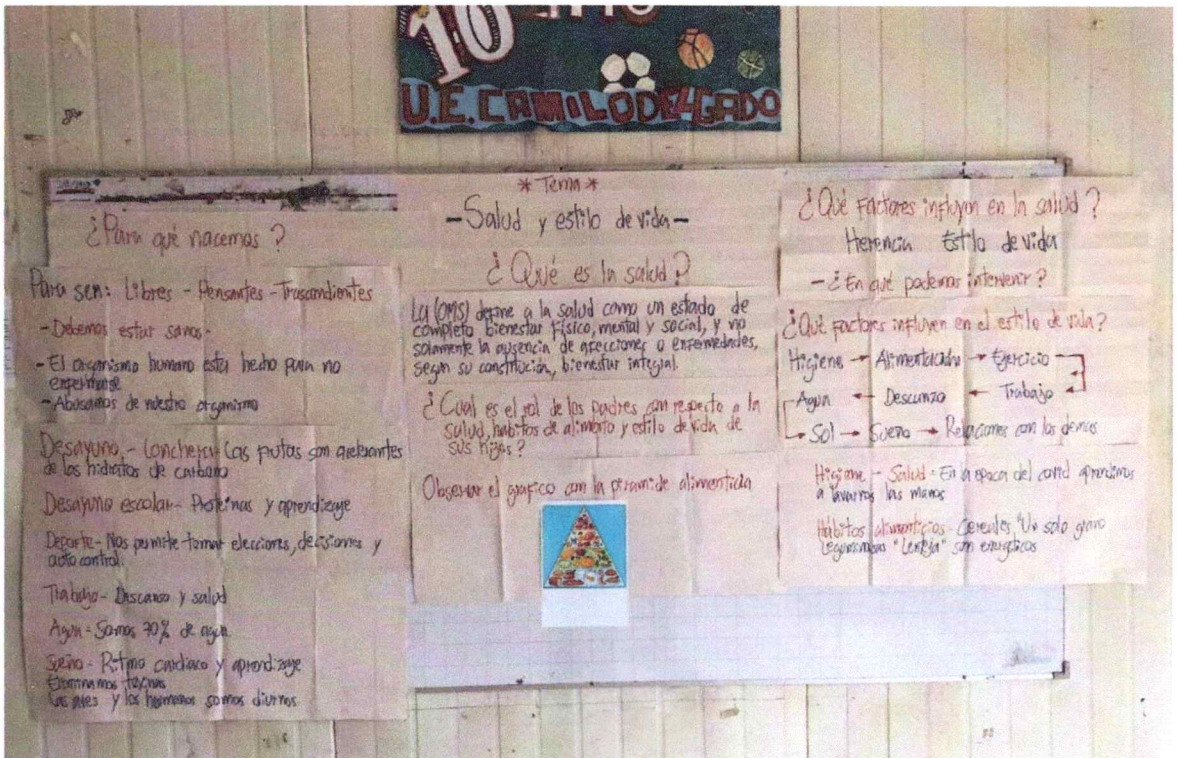 10
U.E. CAMILO DELGADO
¿Para qué nacemos?
Para ser: Libres - Pensantes - Trascendientes
- Debemos estar sanos -
- El organismo humano esta hecho para no
enfermarse
- Abusamos de nuestro organismo
Desayuno - Lonchera- Las frutas son
de los hidratos de carbano
Desayuno escolar - Proteinas y aprendizaje
Deporte - Nos permite tomar elecciones, decisiones y
auto control.
Trabajo - Descanso y salud
Agua - Somos 70% de agua
Sueño - Ritmo cardiaco y aprendizaje
Eliminamos toxinas
Las aves y los humanos somos diurnos
* Tema *
- Salud y estilo de vida -
¿Qué es la salud?
La (OMS) define a la salud como un estado de
completo bienestar físico, mental y social, y no
solamente la ausencia de afecciones o enfermedades,
segun su constitución, bienestar integral.
¿Cual es el rol de los padres con respecto a la
salud, habitos de alimento y estilo de vida de
sus hijos?
Observar el grafico con la piramide alimenticia
¿Qué factores influyen en la salud?
Herencia Estilo de vida
- ¿En qué podemos intervenir?
¿Qué factores influyen en el estilo de vida?
Higiene → Alimentación → Ejercicio
Agua ← Descanzo ← Trabajo
Sol → Sueño → Relaciones con los demas
Higiene - Salud - En la epoca del covid aprendimos
a lavarnos las manos
Hábitos alimenticios - Cereales "Un solo grano
Leguminosas "Lenteja" son energéticos